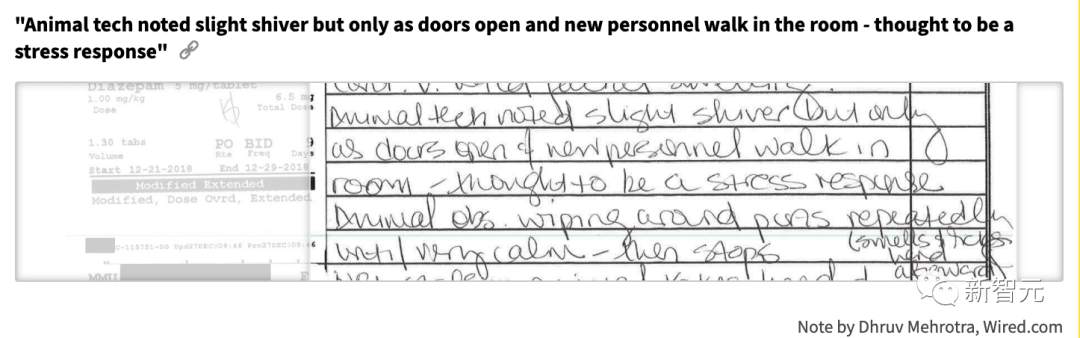 "Animal tech noted slight shiver but only as doors open and new personnel walk in the room - thought to be a
stress response"
Diazepam 5 mg/tablet
1.00 mg/kg 6.5 mg
Dose Total Dose
1.30 tabs PO BID 9
Volume Rte Freq Days
Start 12-21-2018 End 12-29-2018
Modified Extended
Modified, Dose Ovrd, Extended
Animal tech noted slight shiver (but only
as doors open & new personnel walk in
room - thought to be a stress response
Animal obs. wiping around pons repeatedly
until very calm - then stops
(smells & licks
hand
afterward)
新智元
Note by Dhruv Mehrotra, Wired.com